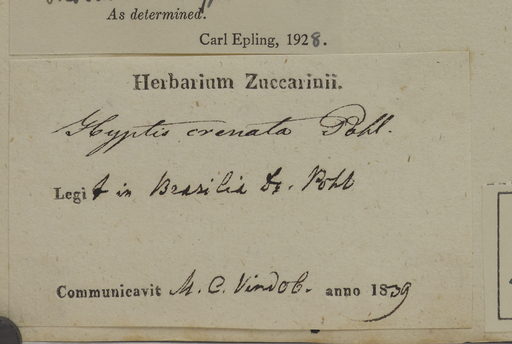 As determined.
Carl Epling, 1928.
Herbarium Zuccarinii.
Hyptis crenata Pohl.
Legit in Brasilia Dr. Pohl
Communicavit M. C. Vindob. anno 1839